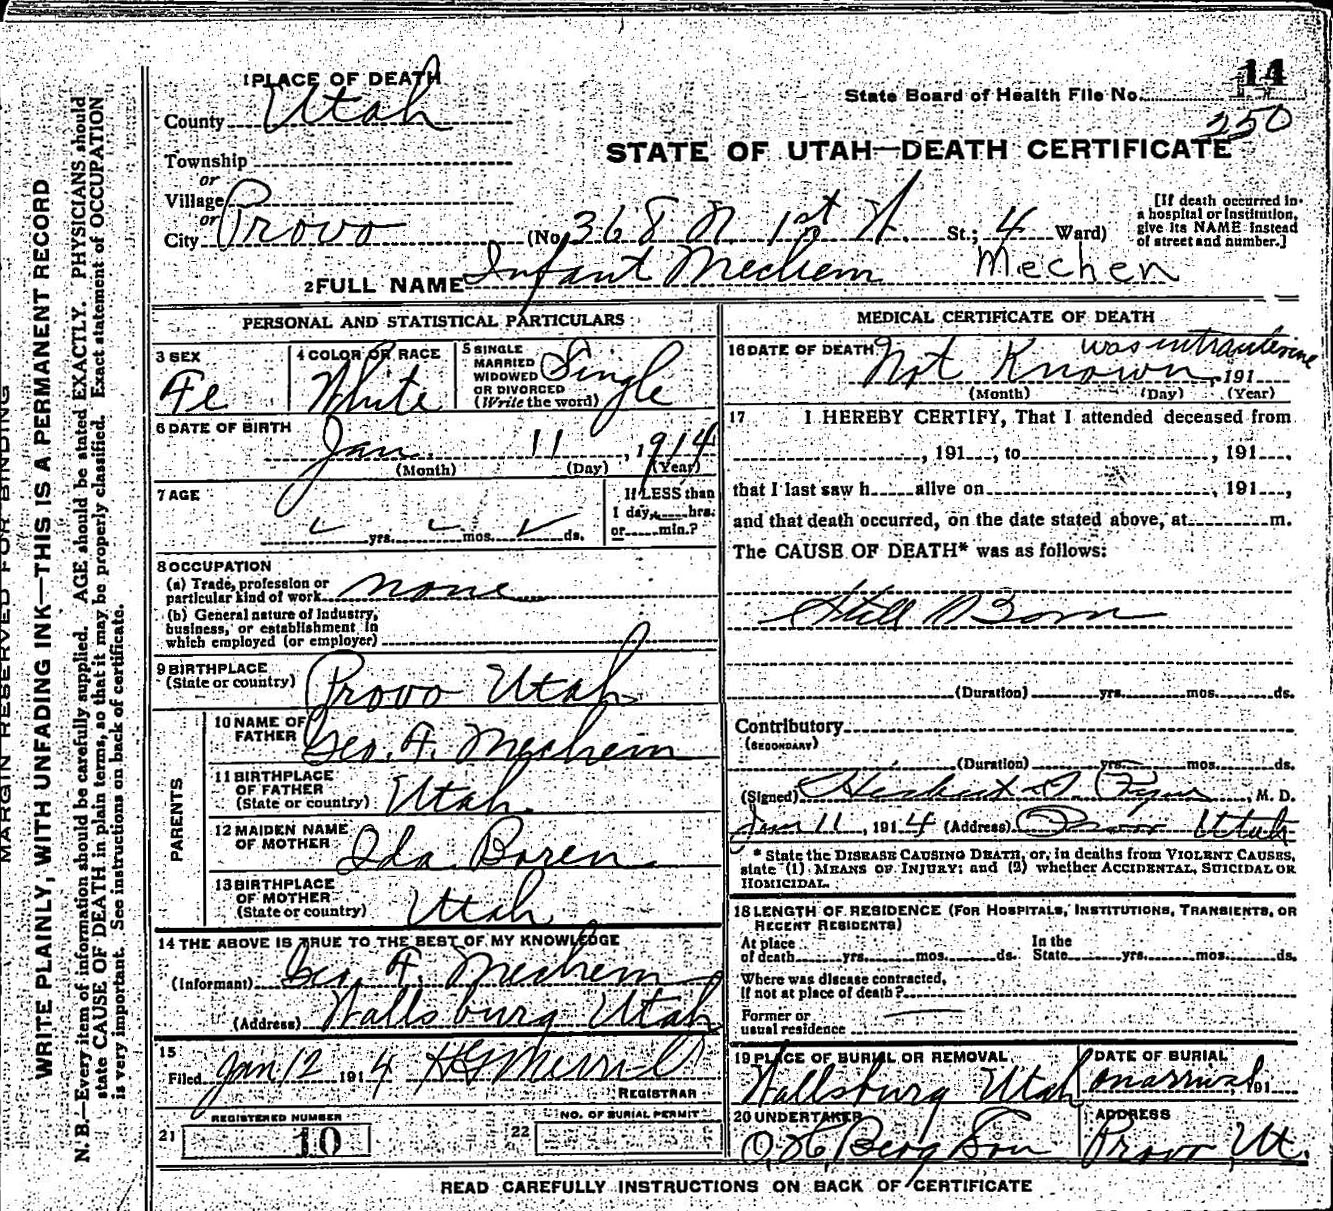 MARGIN RESERVED FOR BINDING
WRITE PLAINLY, WITH UNFADING INK—THIS IS A PERMANENT RECORD
N. B.—Every item of information should be carefully supplied. AGE should be stated EXACTLY. PHYSICIANS should
state CAUSE OF DEATH in plain terms, so that it may be properly classified. Exact statement of OCCUPATION
is very important. See instructions on back of certificate.
1 PLACE OF DEATH
County Utah
Township
or
Village
or
City Provo
State Board of Health File No. 14
250
STATE OF UTAH—DEATH CERTIFICATE
(No. 368 N. 1st W. St.; 4 Ward)
[If death occurred in
a hospital or institution,
give its NAME instead
of street and number.]
2 FULL NAME Infant Mechem Mechen
PERSONAL AND STATISTICAL PARTICULARS
3 SEX
Fe
4 COLOR OR RACE
White
5 SINGLE
MARRIED
WIDOWED
OR DIVORCED
(Write the word)
Single
6 DATE OF BIRTH
Jan. 11, 1914
(Month) (Day) (Year)
7 AGE
yrs. mos. ds.
If LESS than
1 day, hrs.
or min.?
8 OCCUPATION
(a) Trade, profession or
particular kind of work none
(b) General nature of industry,
business, or establishment in
which employed (or employer)
9 BIRTHPLACE
(State or country) Provo Utah
PARENTS
10 NAME OF
FATHER Geo. A. Mechem
11 BIRTHPLACE
OF FATHER
(State or country) Utah.
12 MAIDEN NAME
OF MOTHER Ida Boren
13 BIRTHPLACE
OF MOTHER
(State or country) Utah
14 THE ABOVE IS TRUE TO THE BEST OF MY KNOWLEDGE
(Informant) Geo. A. Mechem
(Address) Wallsburg Utah
15
Filed Jan 12 1914 H G Merrill
REGISTRAR
REGISTERED NUMBER
21 10
NO. OF BURIAL PERMIT
22
MEDICAL CERTIFICATE OF DEATH
16 DATE OF DEATH
was intrauterine
Not Known, 191
(Month) (Day) (Year)
17 I HEREBY CERTIFY, That I attended deceased from
, 191 , to , 191 ,
that I last saw h alive on , 191 ,
and that death occurred, on the date stated above, at m.
The CAUSE OF DEATH* was as follows:
Still Born
(Duration) yrs. mos. ds.
Contributory
(SECONDARY)
(Duration) yrs. mos. ds.
(Signed) Herbert M. D.
Jan 11, 1914 (Address) Provo Utah
* State the DISEASE CAUSING DEATH, or, in deaths from VIOLENT CAUSES,
state (1) MEANS OF INJURY; and (2) whether ACCIDENTAL, SUICIDAL OR
HOMICIDAL.
18 LENGTH OF RESIDENCE (FOR HOSPITALS, INSTITUTIONS, TRANSIENTS, OR
RECENT RESIDENTS)
At place
of death yrs. mos. ds.
In the
State yrs. mos. ds.
Where was disease contracted,
If not at place of death?
Former or
usual residence
19 PLACE OF BURIAL OR REMOVAL
Wallsburg Utah
DATE OF BURIAL
on arrival 191
20 UNDERTAKER
O. H. Berg Son
ADDRESS
Provo Ut.
READ CAREFULLY INSTRUCTIONS ON BACK OF CERTIFICATE